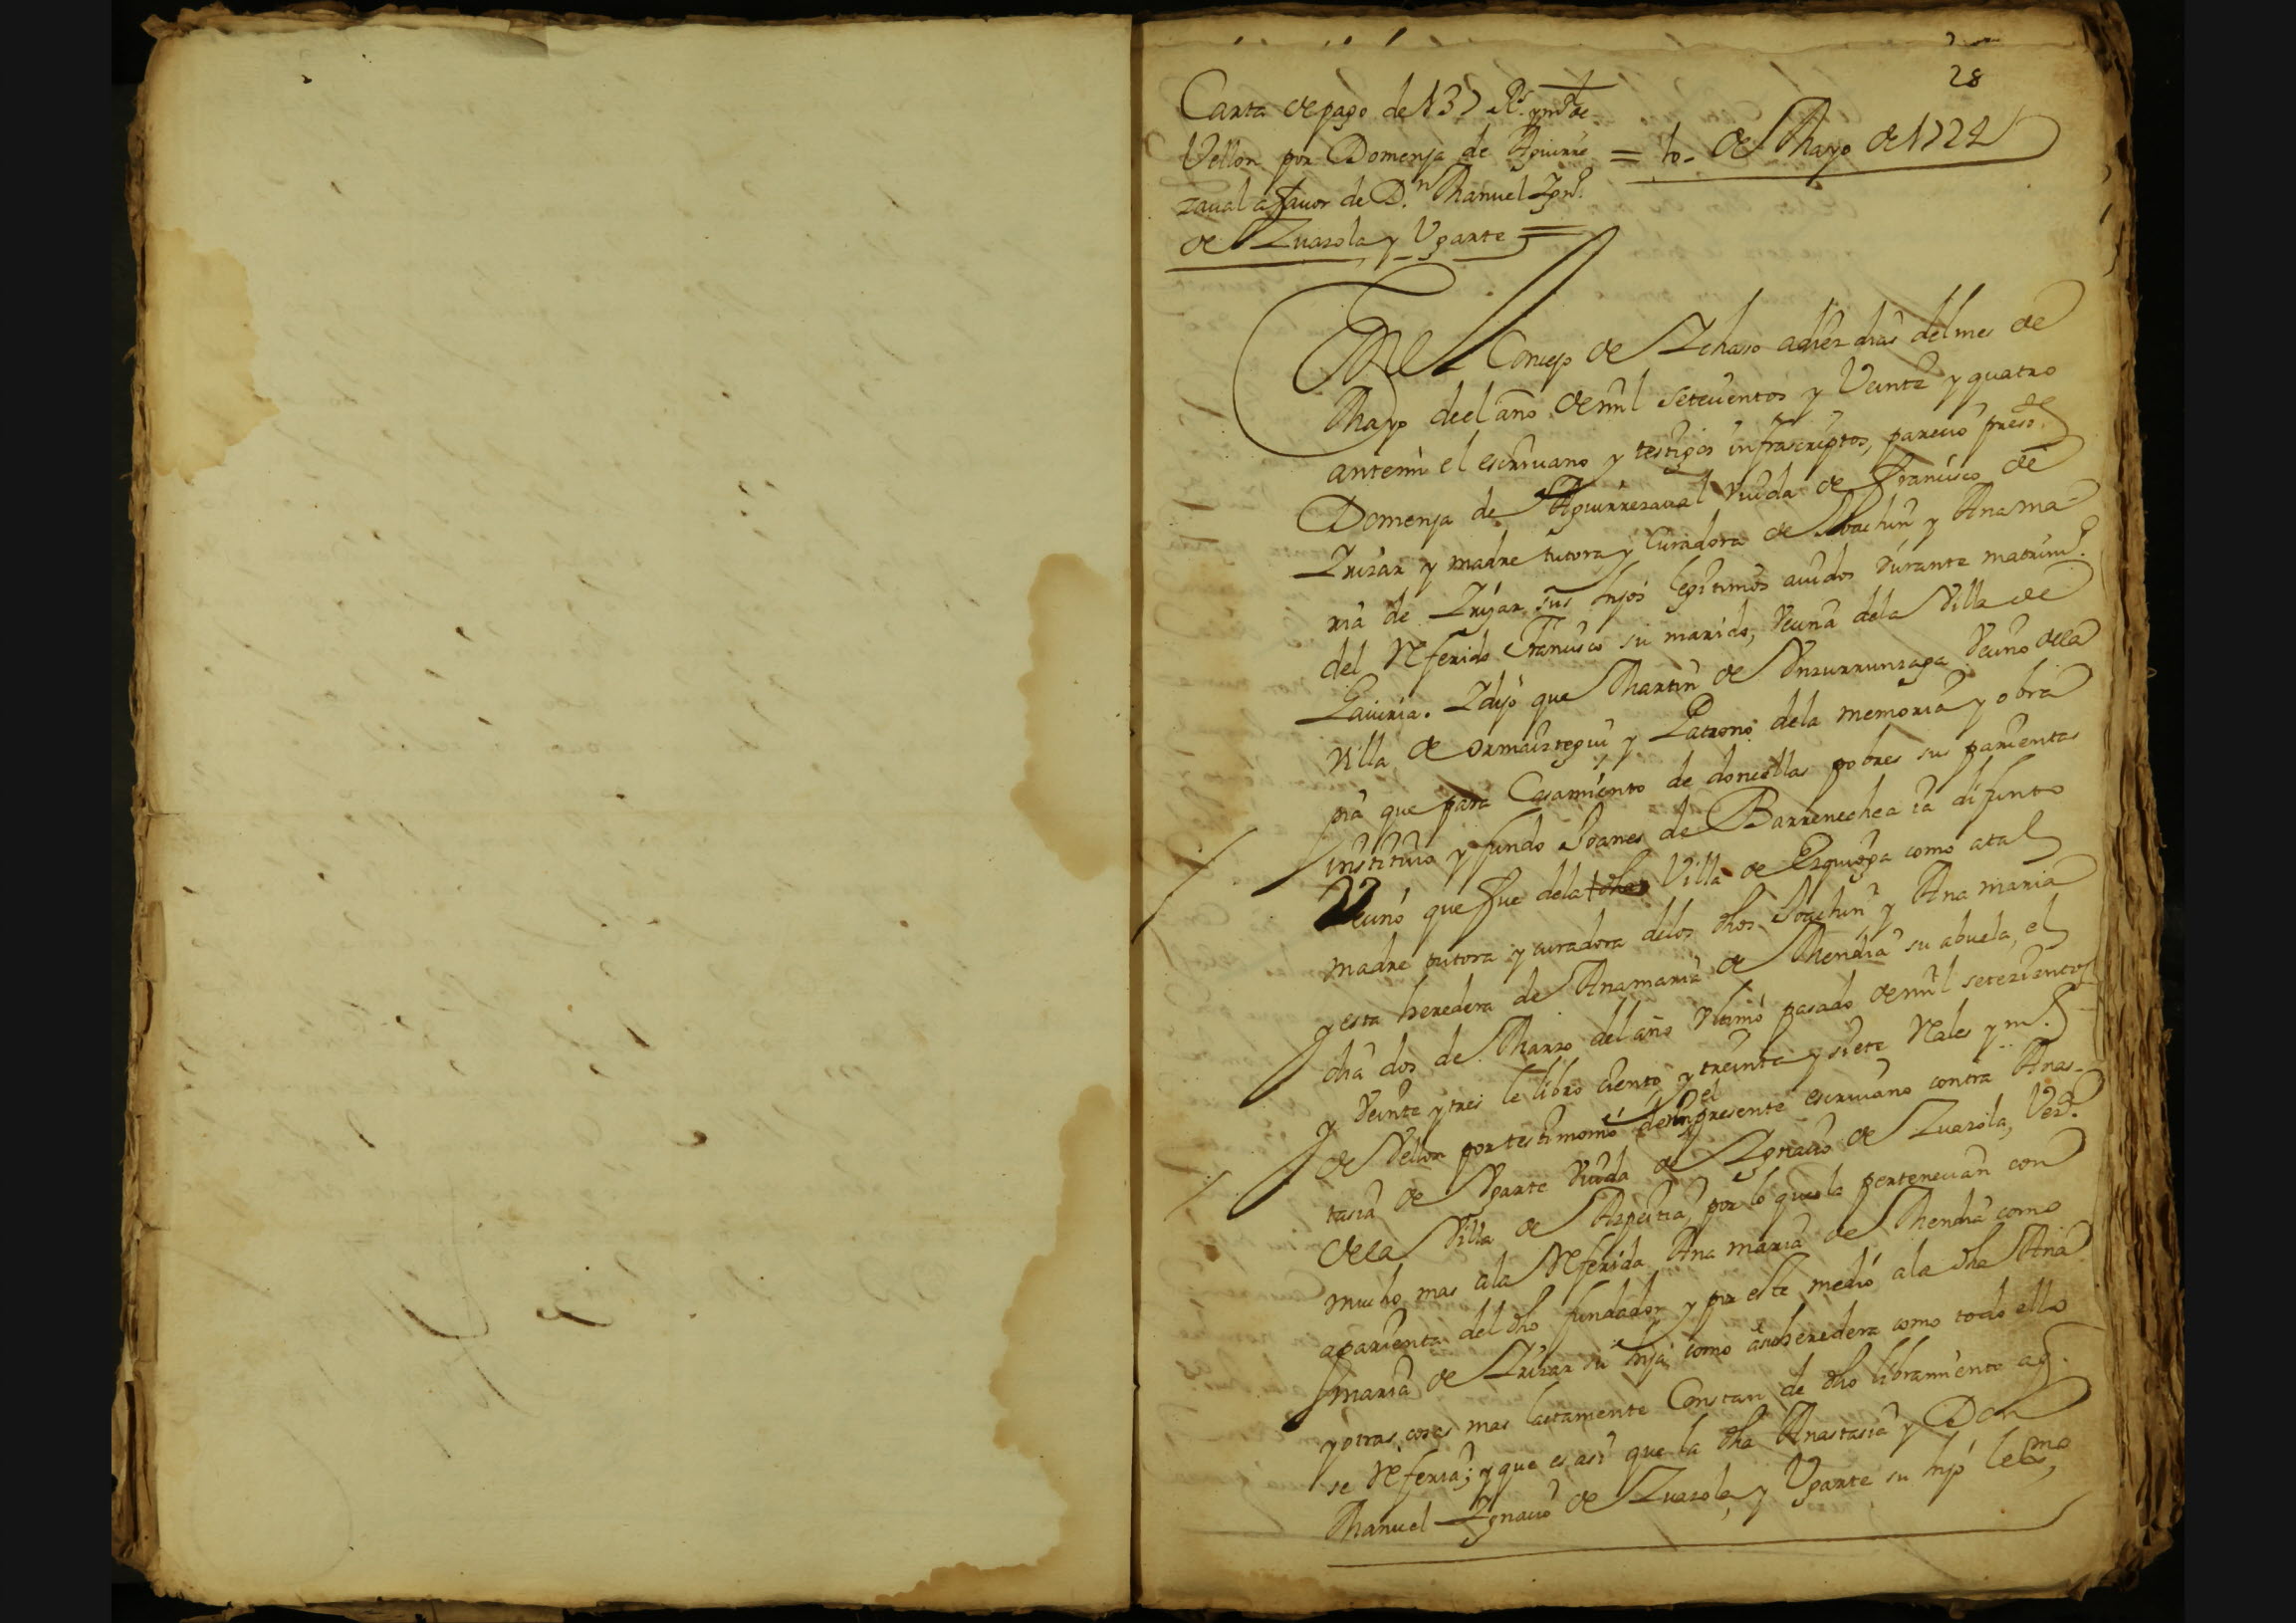 28
Carta de pago de 137 Rs. y md. de
Vellon por Domenja de Aguirre
zaval a favor de D.n Manuel Ign.o
de Zuazola y Ugarte =
= 10 - de Mayo de 1724
En el Concejo de Ychaso a diez dias del mes de
Mayo deel año de mil setecientos y Veinte y quatro
antemi el escrivano y testigos infrascriptos, parecio pres.te
Domenja de Aguirrezaval viuda de Francisco de
Yrizar y madre tutora y Curadora de Joachin y Ana ma-
ria de Yrizar sus hijos legitimos avidos durante matrim.o
del Referido Francisco su marido, Vecina dela Villa de
Gaviria. Y dijo que Martin de Unzurrunzaga Vecino dela
Villa de ormaiztegui y Patrono dela memoria y obra
pia que para Casamiento de doncellas pobres sus parientas
instituio y fundo Joanes de Barrenechea ia difunto
Vecino que fue dela Villa de Ezquioga como atal
madre tutora y curadora delos dhos Joachin y Ana maria
y esta heredera de Anamaria de Mendia su abuela, el
dia dos de Marzo del año ultimo pasado de mil setezientos
y Veinte y tres le libro ciento y treinta y siete Reales y m.o
de Vellon por testimonio del presente escrivano contra Anas-
tasia de Ugarte Viuda de Ygnacio de Zuazola, Vez.a
dela Villa de Azpeitia, por lo que la pertenecian con
mucho mas ala Referida Ana maria de Mendia como
a parienta del dho fundador y por este medio ala dha Ana
maria de Yrizar su hija como a su heredera como todo ello
y otras cosas mas lactamente Constan de dho libramiento a q.
se Referia; y que es asi que la dha Anastasia y Don
Manuel Ygnacio de Zuazola y Ugarte su hijo lexmo,